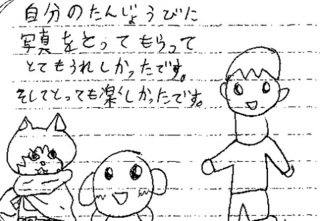 自分のたんじょうびに
写真をとってもらって
とてもうれしかったです。
そしてとっても楽しかったです。